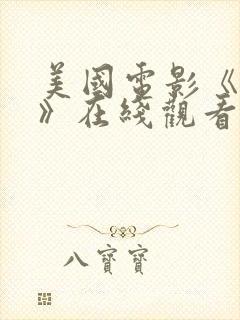 美國電影《
》在綫觀看
八寶寶